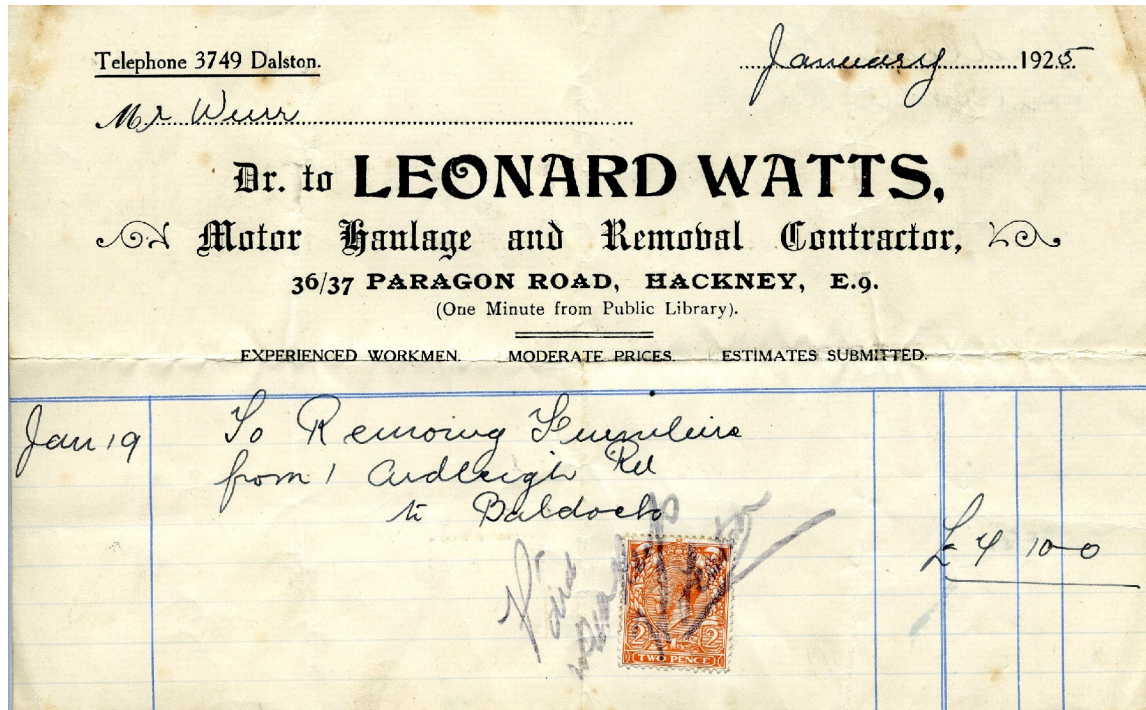 Telephone 3749 Dalston.
January 1925
Mr Weir
Dr. to LEONARD WATTS,
Motor Haulage and Removal Contractor,
36/37 PARAGON ROAD, HACKNEY, E.9.
(One Minute from Public Library).
EXPERIENCED WORKMEN. MODERATE PRICES. ESTIMATES SUBMITTED.
Jan 19 To Removing Furniture
from 1 Ardleigh Rd
to Baldock
£4 10-0
Paid
2 2
TWO PENCE